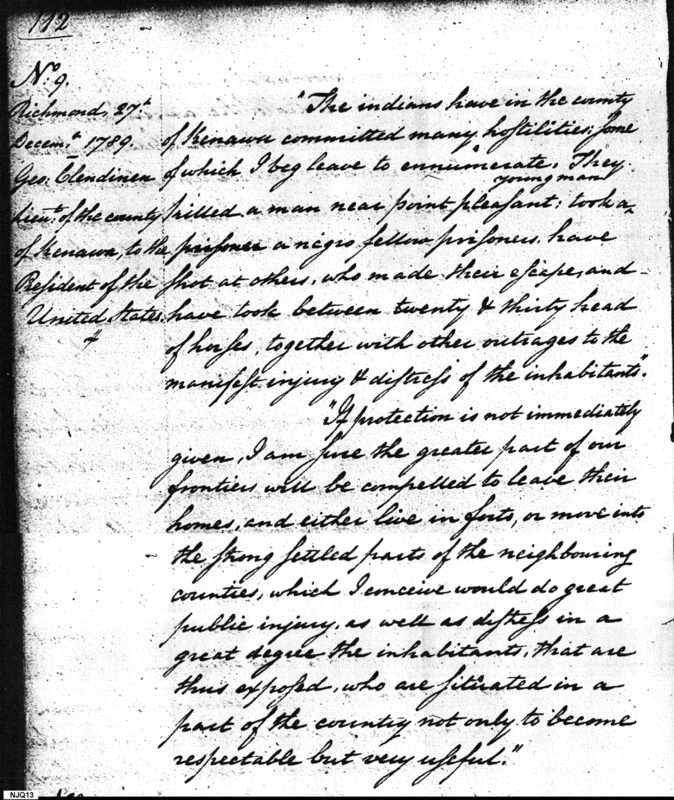 112
No. 9.
Richmond, 27th
Decemr. 1789.
Geo. Clendinen
Lieut. of the county
of Kenawa, to the
President of the
United States.
"The indians have in the county
of Kenawa committed many hostilities; some
of which I beg leave to ennumerate. They
killed a man near point pleasant; took a young man
prisoner a negro fellow prisoners, have
shot at others, who made their escape, and
have took between twenty & thirty head
of horses, together with other outrages to the
manifest injury & distress of the inhabitants".
"If protection is not immediately
given, I am sure the greater part of our
frontiers will be compelled to leave their
homes, and either live in forts, or move into
the strong settled parts of the neighbouring
counties, which I conceive would do great
public injury, as well as distress in a
great degree the inhabitants, that are
thus exposed, who are situated in a
part of the country not only to become
respectable but very useful."
NJQ13